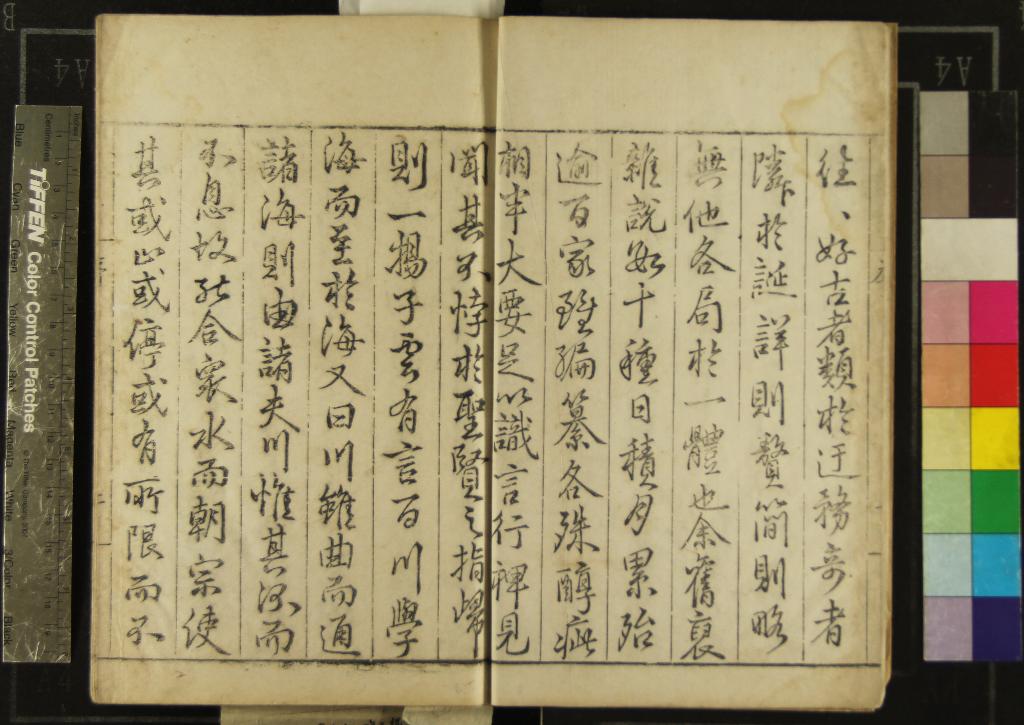 往、好古者類於迂務奇者
隣於誕詳則贅簡則略
無他各局於一體也余舊裒
雜說數十種日積月累殆
逾百家雖編纂各殊醇疵
相半大要足以識言行裨見
聞其不悖於聖賢之指歸
則一揚子雲有言百川學
海而至於海又曰川雖曲而通
諸海則由諸夫川惟其深而
不息故能合衆水而朝宗使
其或止或停或有所限而不
TIFFEN Color Control Patches
Centimetres
Inches
Blue
Cyan
Green
Yellow
Red
Magenta
White
3/Color
Black
A4
A4
B